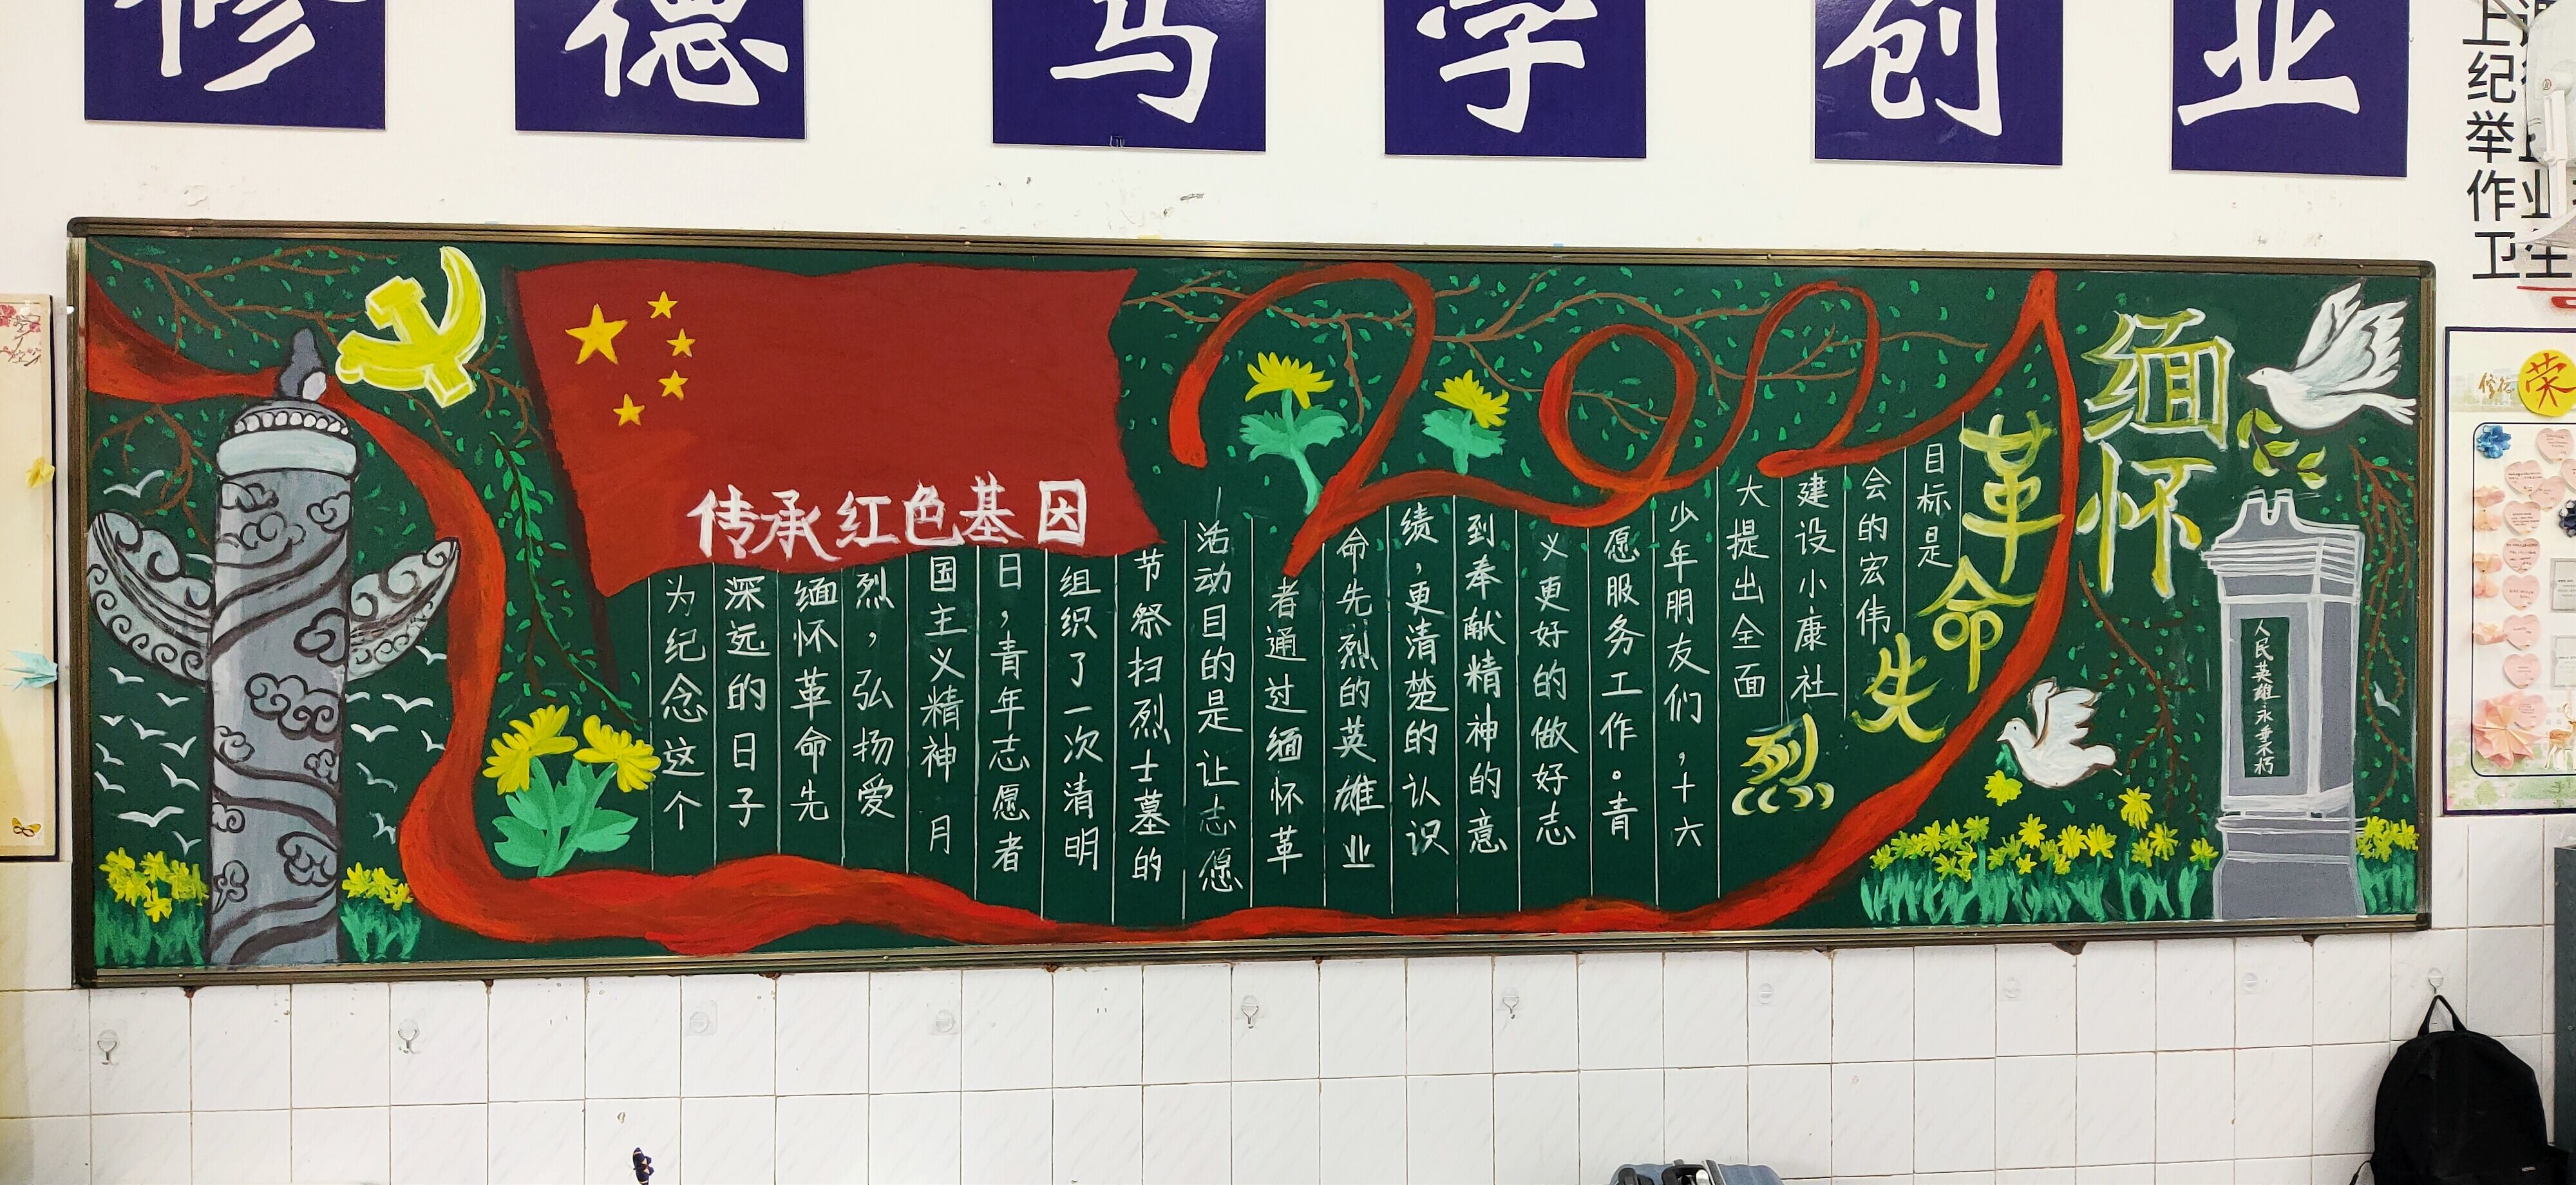 修德笃学创业
上
纪
举
作
卫
荣
传承红色基因
2021
缅怀
革命失烈
为纪念这个
深远的日子
缅怀革命先
烈，弘扬爱
国主义精神 月
日，青年志愿者
组织了一次清明
节祭扫烈士墓的
活动目的是让志愿
者通过缅怀革
命先烈的英雄业
绩，更清楚的认识
到奉献精神的意
义更好的做好志
愿服务工作。青
少年朋友们，十六
大提出全面
建设小康社
会的宏伟
目标是
人民英雄永垂不朽